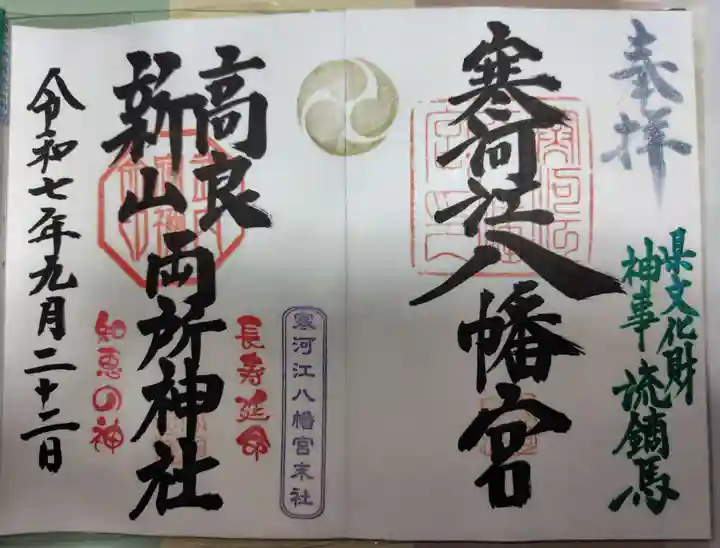 奉拝
県文化財
神事・流鏑馬
寒河江八幡宮
寒河江八幡宮末社
長寿延命
高良
新山
両所神社
知恵の神
令和七年九月二十二日